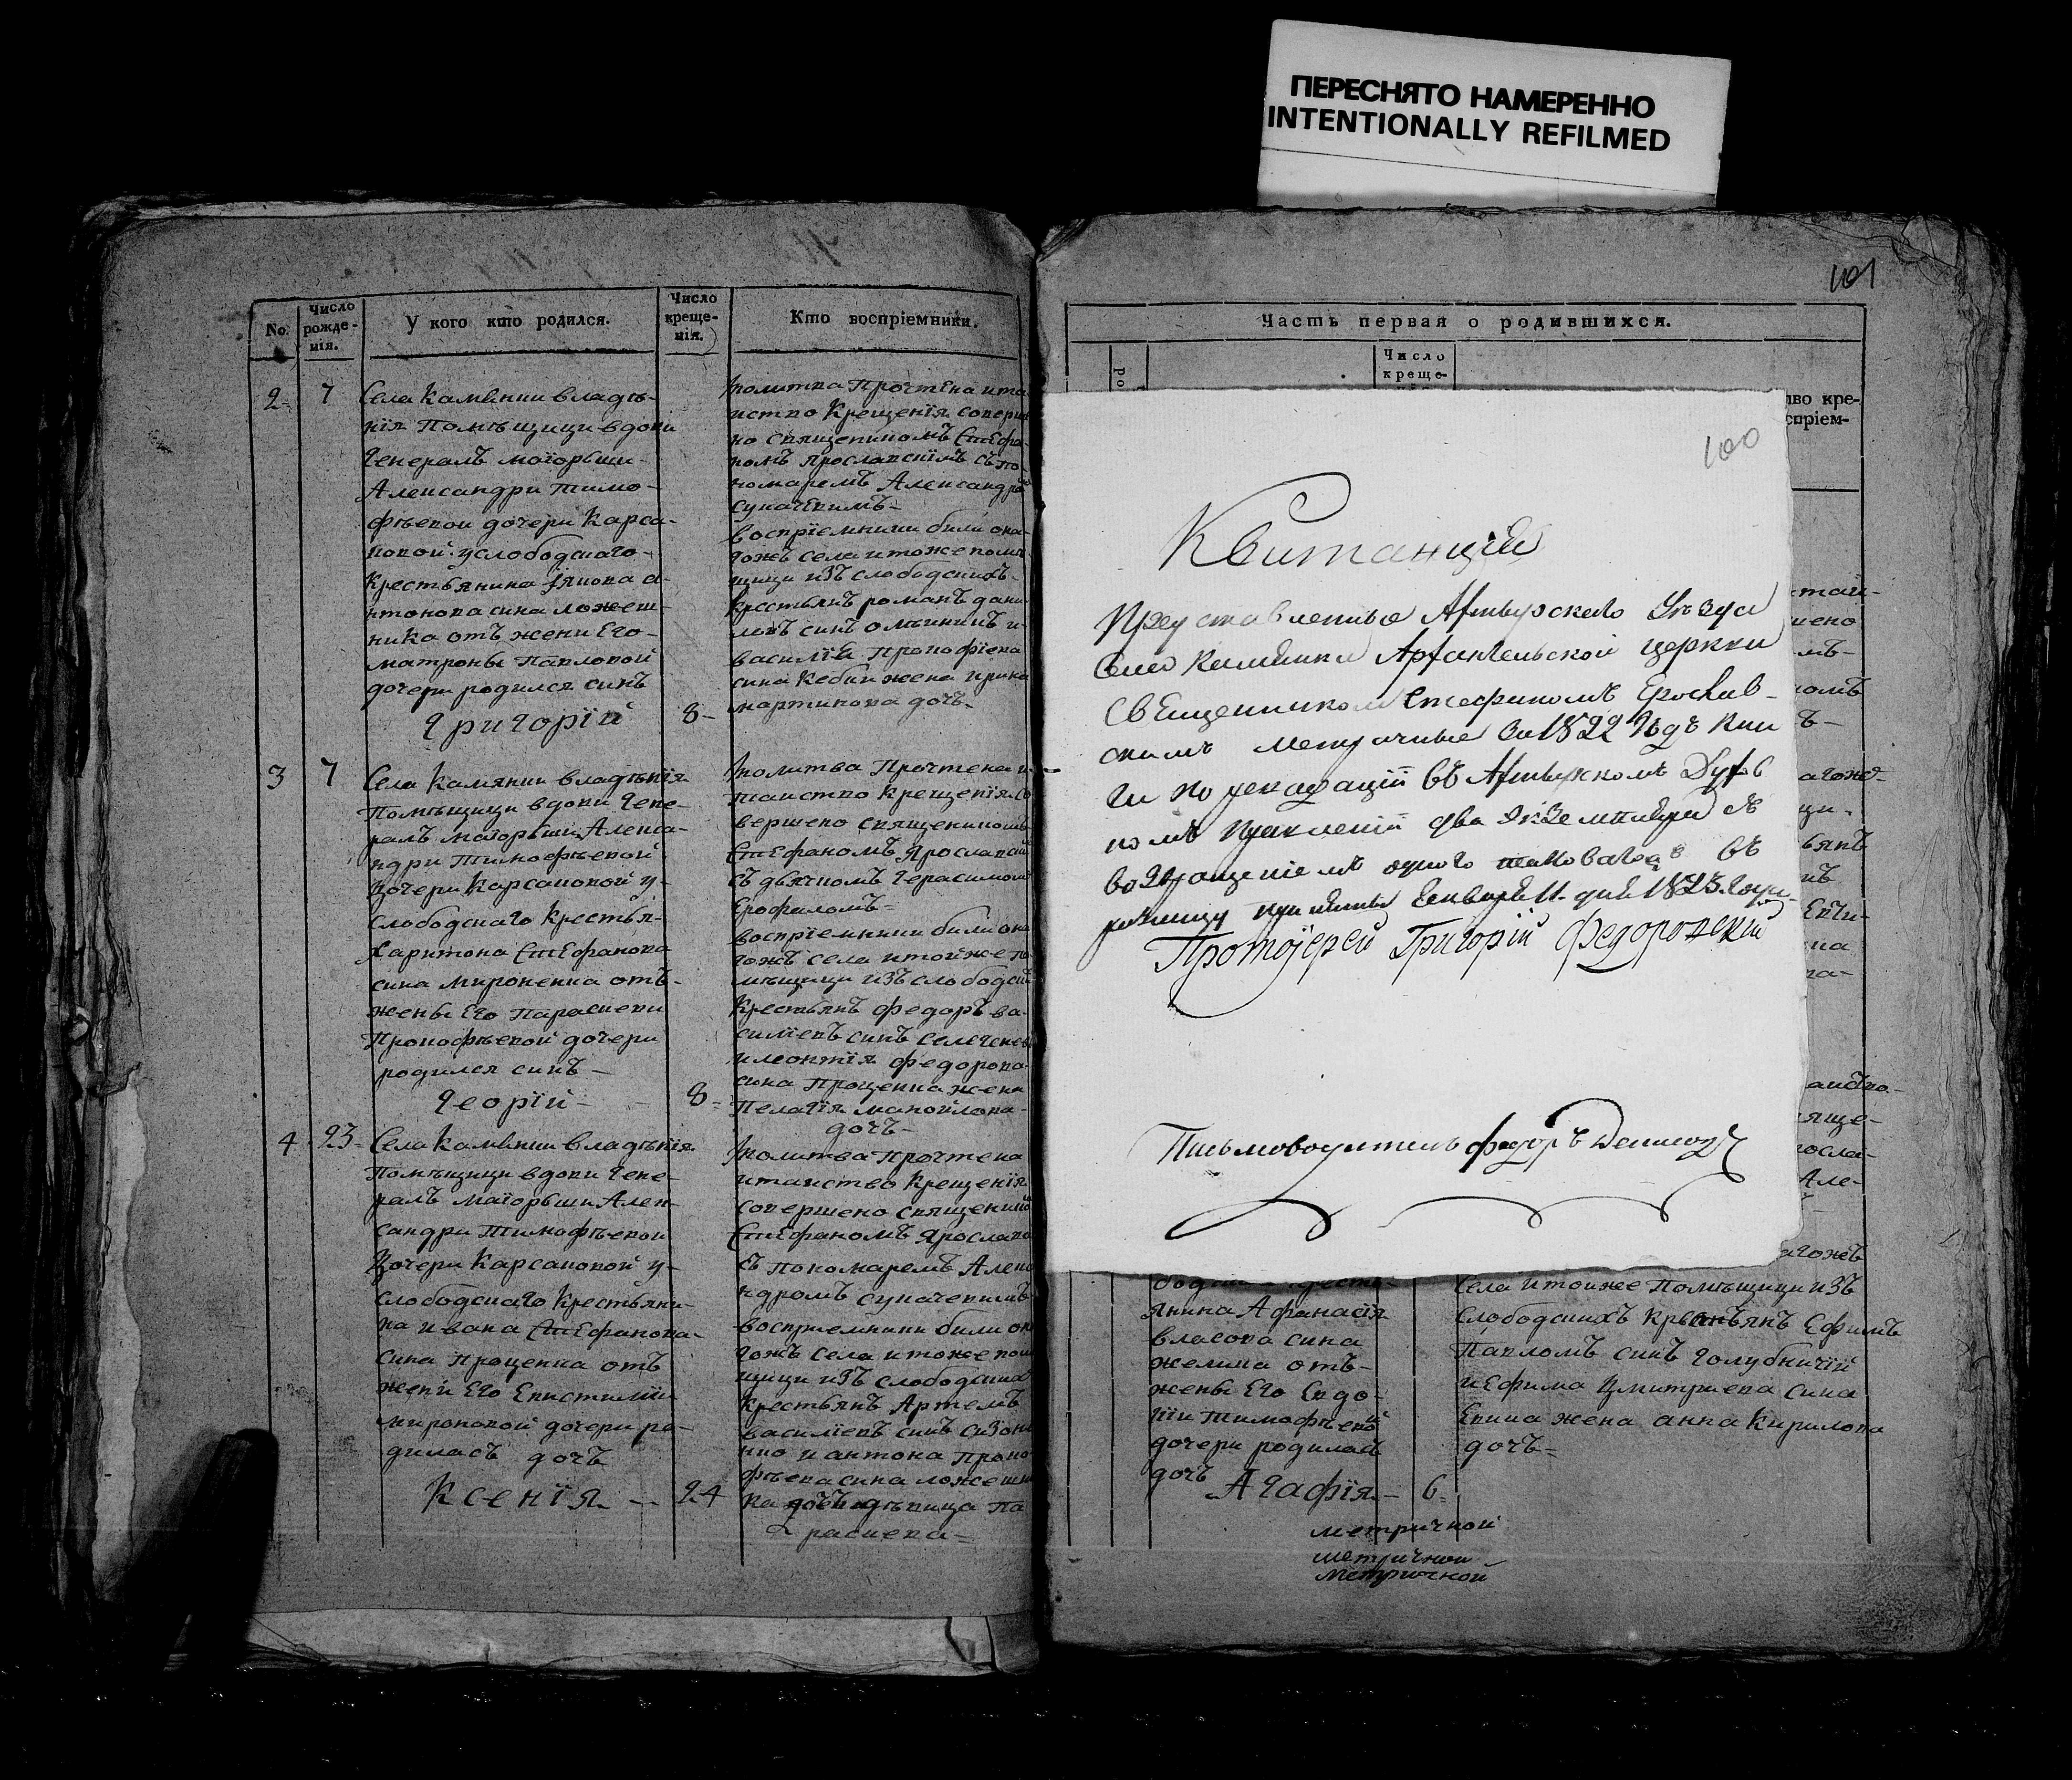 ПЕРЕСНЯТО НАМЕРЕННО
INTENTIONALLY REFILMED
No.
Число рожде-нія.
У кого кто родился.
Число креще-нія.
Кто воспріемники.
2 7
Села Камянки владѣ-
нія Помѣщици вдови
Генералъ маіорьши
Александри Тимо-
фѣевои дочери Карса-
ковой услободскаго
Крестьянина Якова а-
нтонова сина ложеш-
ника отъ жени Его
матроны Павловой
дочери родился синъ
Григорій 8
Молитва Прочтена ита
инство Крещенія соверше
но священикомъ Стефа-
номъ Ярославскимъ съ по
номаремъ Александро
воспріемники били она
гожъ села итоже помѣ
щици изъ слободскихъ
Крестьянъ романъ дани
ловъ синъ и
василія Прокофіева
сина жена ирина
мартинова дочь
3 7
Села Камянки владѣнія
Помѣщици вдови Гене-
ралъ маіорьши Алекса-
ндри Тимофѣевой
Дочери Карсаковой у-
слободскаго Крестья-
Харитона Стефанова
сина мироненка отъ
жены Его Параскеви
Прокофѣевой дочери
родился синъ
Георгій 8
Молитва Прочтена и
таинство Крещенія со
вершено священикомъ
Стефаномъ Ярославски
съ дьячкомъ Герасимом
Ерофаломъ
воспріемники били она
гожъ села итойже по
мѣщици изъ слободск
Крестьянъ федоръ ва-
силіевъ синъ
илеонтія федорова
сина Проценка жена
Пелагія мануйлова
дочь
4 23
Села Камянки владѣнія
Помѣщици вдови Гене-
ралъ маіорьши Алек-
сандри Тимофѣевои
Дочери Карсаковой у-
слободскаго Крестьяни-
на ивана Стефанова
сина проценка отъ
жени Его Епистиміи
мироновой дочери ро-
диласъ дочъ
Ксенія 24
Молитва Прочтена
итаинство Крещенія
совершено священико
Стефаномъ Ярославс
съ пономаремъ Алекс
ндромъ
воспріемники били он
гожъ села итоже пом
щици изъ слободских
Крестьянъ Артемъ
василіевъ синъ
и антона Проко
фѣева сина ложешн
ка дочь дѣвица Па
раскева
101
Часть первая о родившихся.
Число креще-
100
Квитанція
Представленные Ахтырскаго Уѣзда
Села Камянки Архангельской церкви
Священникомъ Стефаномъ Ярослав-
скимъ метричные за 1822 Годъ Кни
ги по въ Ахтырскомъ Духов
номъ Правленіи два экземпляра съ
возвращеніемъ одного таковаго въ
приняты Генваря 11. дня 1823. Года
Протоіерей Григорій Федоровскій
Письмоводитель федоръ
янина Афанасія
власова сина
отъ
жены Его Евдо-
кіи Тимофѣевой
дочери родиласъ
дочъ Агафія 6
Села итоиже Помѣщици изъ
слободскихъ Крестьянъ Ефимъ
Павломъ синъ голубничій
иЕфима Дмитріева сина
жена анна Кирилова
дочъ
метричной
метричной
метричной